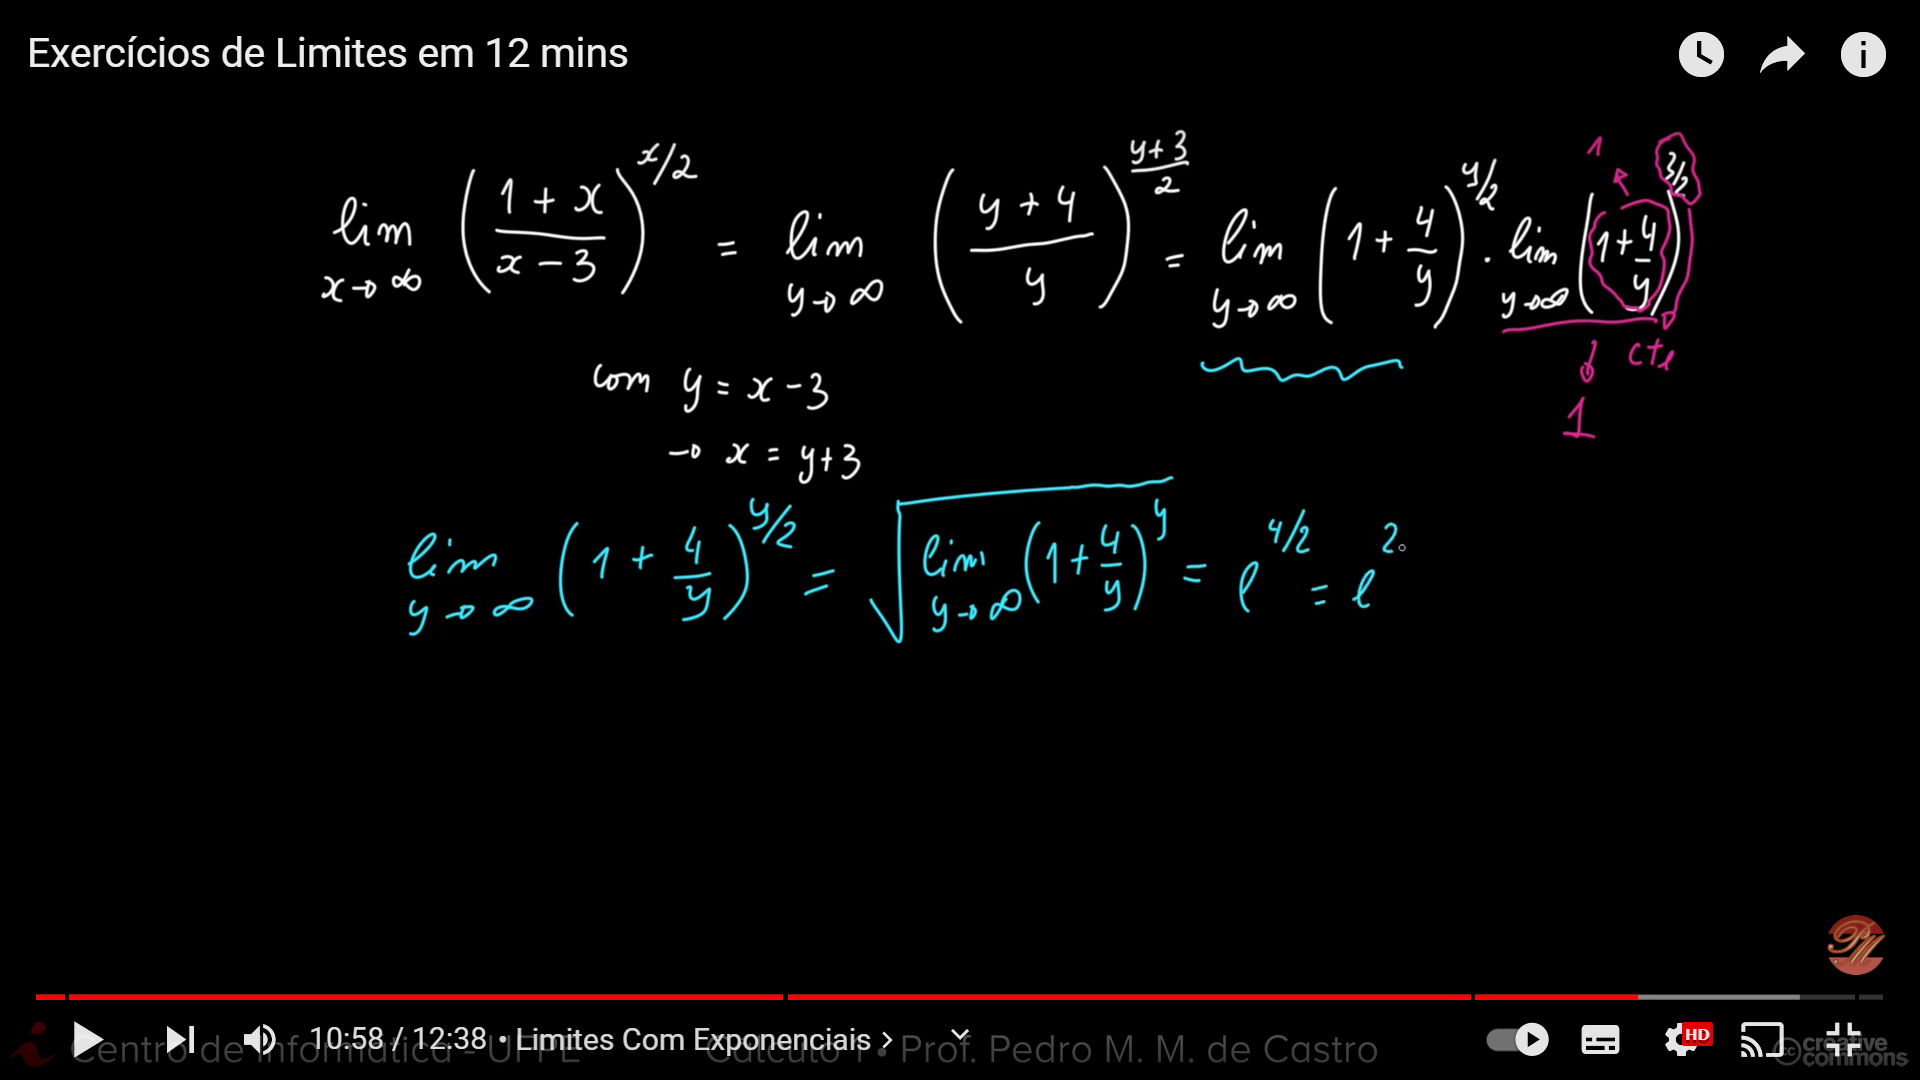 Exercícios de Limites em 12 mins
lim x→∞ ((1 + x)/(x − 3))^(x/2) = lim y→∞ ((y + 4)/y)^((y+3)/2) = lim y→∞ (1 + 4/y)^(y/2) · lim y→∞ (1 + 4/y)^(3/2)
1
cte
1
com y = x − 3
→ x = y + 3
lim y→∞ (1 + 4/y)^(y/2) = √(lim y→∞ (1 + 4/y)^y) = e^(4/2) = e^2
PM
10:58 / 12:38 • Limites Com Exponenciais >
HD
Centro de Informática - UFPE
Cálculo 1 • Prof. Pedro M. M. de Castro
creative commons